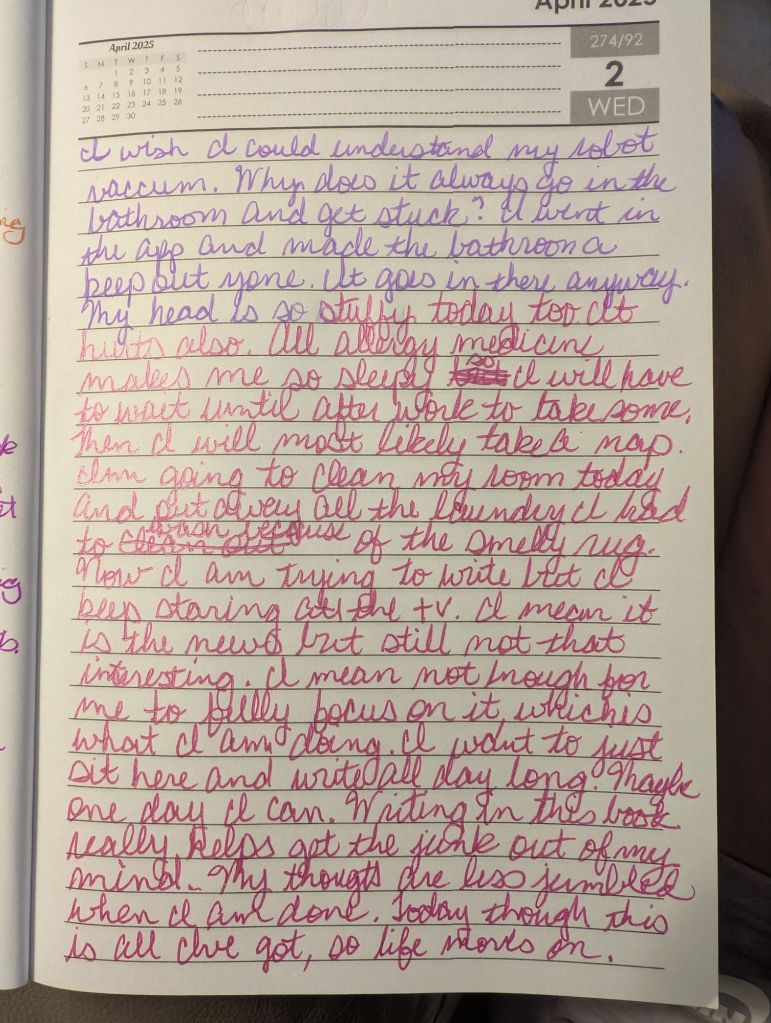 April 2025
April 2025
S M T W T F S
1 2 3 4 5
6 7 8 9 10 11 12
13 14 15 16 17 18 19
20 21 22 23 24 25 26
27 28 29 30
274/92
2
WED
I wish I could understand my robot
vaccum. Why does it always go in the
bathroom and get stuck? I went in
the app and made the bathroom a
keep out zone. It goes in there anyway.
My head is so stuffy today too. It
hurts also. All allergy medicine
makes me so sleepy so I will have
to wait until after work to take some.
Then I will most likely take a nap.
I am going to clean my room today
and put away all the laundry I had
to wash because of the smelly rug.
Now I am trying to write but I
keep staring at the tv. I mean it
is the news but still not that
interesting. I mean not enough for
me to fully focus on it, which is
what I am doing. I want to just
sit here and write all day long. Maybe
one day I can. Writing in this book
really helps get the junk out of my
mind. My thougts are less jumbled
when I am done. Today though this
is all I've got, so life moves on.
ng